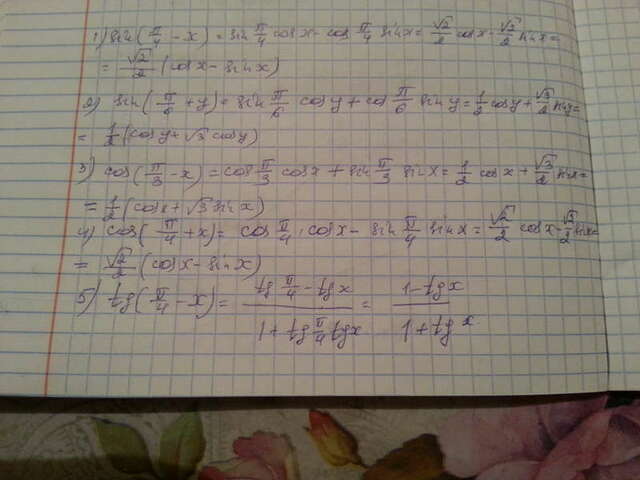 1) sin(π/4 - x) = sin π/4 cos x - cos π/4 sin x = √2/2 cos x - √2/2 sin x =
= √2/2 (cos x - sin x)
2) sin(π/6 + y) = sin π/6 cos y + cos π/6 sin y = 1/2 cos y + √3/2 sin y =
= 1/2 (cos y + √3 sin y)
3) cos(π/3 - x) = cos π/3 cos x + sin π/3 sin x = 1/2 cos x + √3/2 sin x =
= 1/2 (cos x + √3 sin x)
4) cos(π/4 + x) = cos π/4 · cos x - sin π/4 sin x = √2/2 cos x - √2/2 sin x =
= √2/2 (cos x - sin x)
5) tg(π/4 - x) = (tg π/4 - tg x)/(1 + tg π/4 tg x) = (1 - tg x)/(1 + tg x)